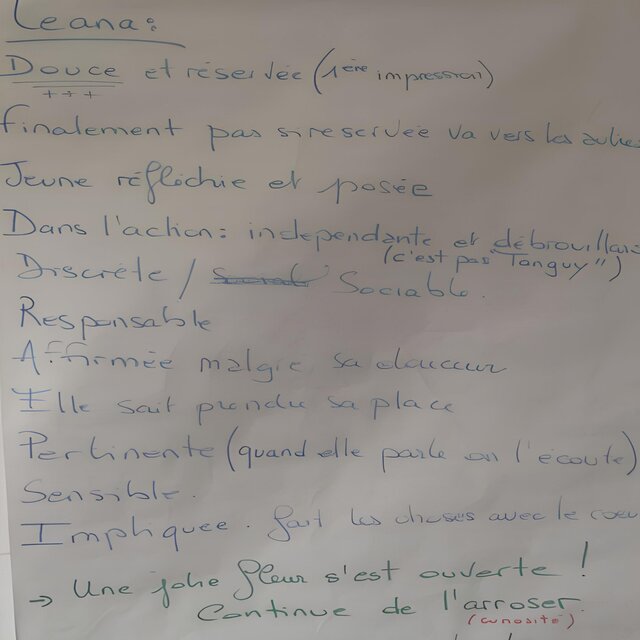 Leana:
Douce et réservée (1ère impression)
+++
finalement pas si reservée va vers les autres
Jeune réfléchie et posée
Dans l'action: independante et débrouillard
(c'est pas "Tanguy")
Discrète / Sociable.
Responsable
Affirmée malgré sa douceur
Elle sait prendre sa place
Pertinente (quand elle parle on l'écoute)
Sensible.
Impliquée. fait les choses avec le coeu
→ Une jolie fleur s'est ouverte !
Continue de l'arroser.
(curiosité)